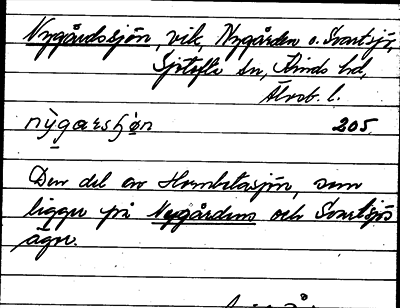 Nygårdssjön, vik, Nygården o. Svartsjö,
Sjötofta sn, Kinds hd,
Älvsb. l.
nỳgarsʃön 205
Den del av Hornbetasjön, som
ligger på Nygårdens och Svartsjös
ägor.